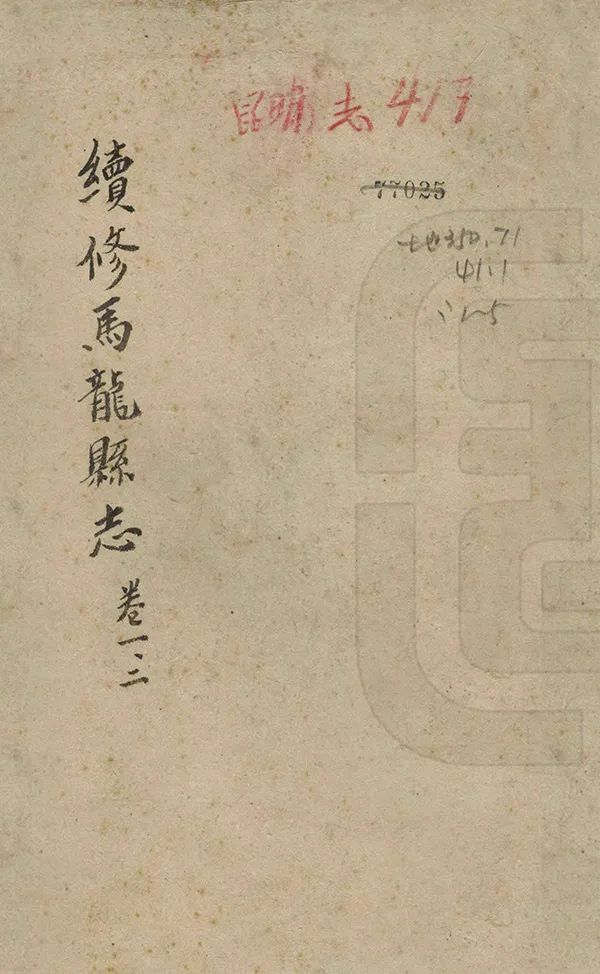 志417
77025
地350.71
41.1
:1~5
續修馬龍縣志
卷一、二